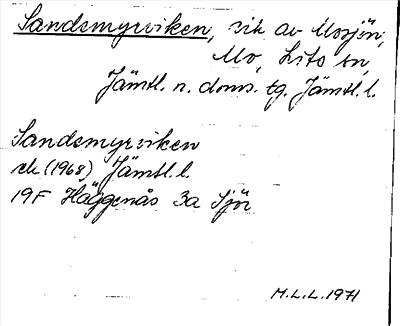 Sandemyrviken, vik av Mosjön,
Mo, Lits sn,
Jämtl. n. doms. tg. Jämtl. l.
Sandemyrviken
ek (1968) Jämtl. l.
19F Häggenås 3a Sjör
M.L.L. 1971